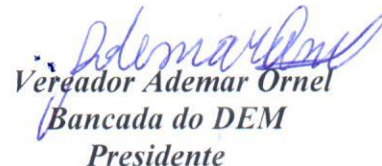 Ademar Ornel
Vereador Ademar Ornel
Bancada do DEM
Presidente